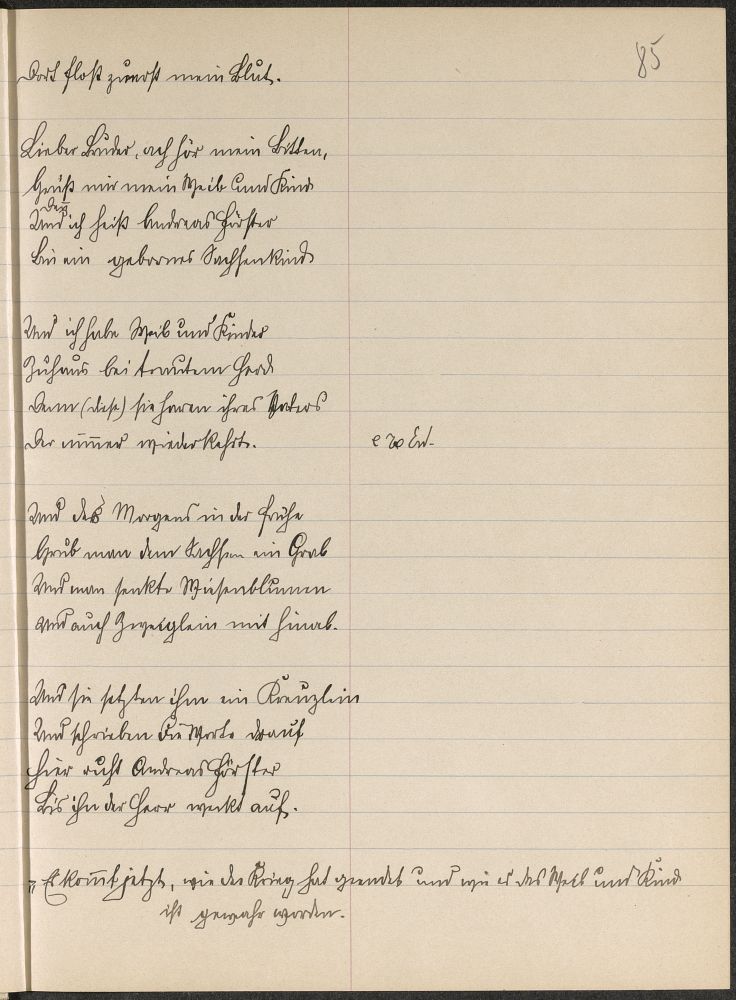 85
Dort floß zuerst mein Blut.
Lieber Bruder, ach hör mein Bitten,
Grüß mir mein Weib und Kind
Den
Und ich heiß Andreas Förster
Bin ein gebornes Sachsenkind
Und ich habe Weib und Kinder
Zuhaus bei trautem Herd
Denn (diese) sie harren ihres Vaters
Der nimmer wiederkehrt.
Und des Morgens in der Frühe
Grub man dem Sachsen ein Grab
Und man senkte Wiesenblumen
Und auch Zweiglein mit hinab.
Und sie setzten ihm ein Kreuzlein
Und schrieben die Worte drauf
Hier ruht Andreas Förster
Bis ihn der Herr weckt auf.
Es kommt jetzt, wie der Krieg hat geendet und wie es das Weib und Kind
ist gewahr worden.